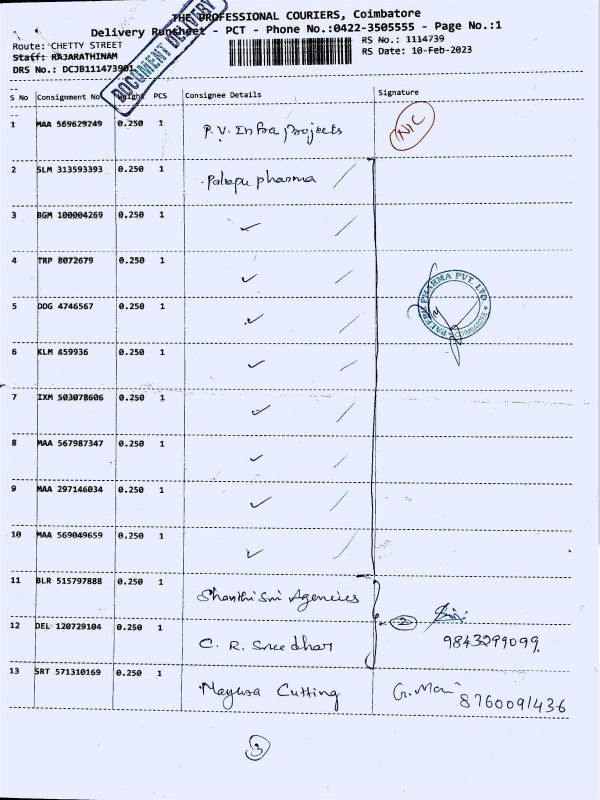 THE PROFESSIONAL COURIERS, Coimbatore
Delivery Runsheet - PCT - Phone No.:0422-3505555 - Page No.:1
Route: CHETTY STREET
RS No.: 1114739
Staff: RAJARATHINAM
RS Date: 10-Feb-2023
DRS No.: DCJB111473901
DOCUMENT DELIVERY
S No Consignment No Weight PCS Consignee Details Signature
1 MAA 569629249 0.250 1 P.V. Infra Projects NIC
2 SLM 313593393 0.250 1 pharma
3 BGM 100004269 0.250 1 ✓
4 TRP 8072679 0.250 1 ✓
PHARMA PVT. LTD. COIMBATORE
5 DDG 4746567 0.250 1 ✓
6 KLM 459936 0.250 1 ✓
7 IXM 503078606 0.250 1 ✓
8 MAA 567987347 0.250 1 ✓
9 MAA 297146034 0.250 1 ✓
10 MAA 569049659 0.250 1 ✓
11 BLR 515797888 0.250 1 Shanthi Sri Agencies
2
12 DEL 120729104 0.250 1 C. R. Sreedhar 9843299099.
13 SRT 571310169 0.250 1 Cutting G. Mani 8760091436
3